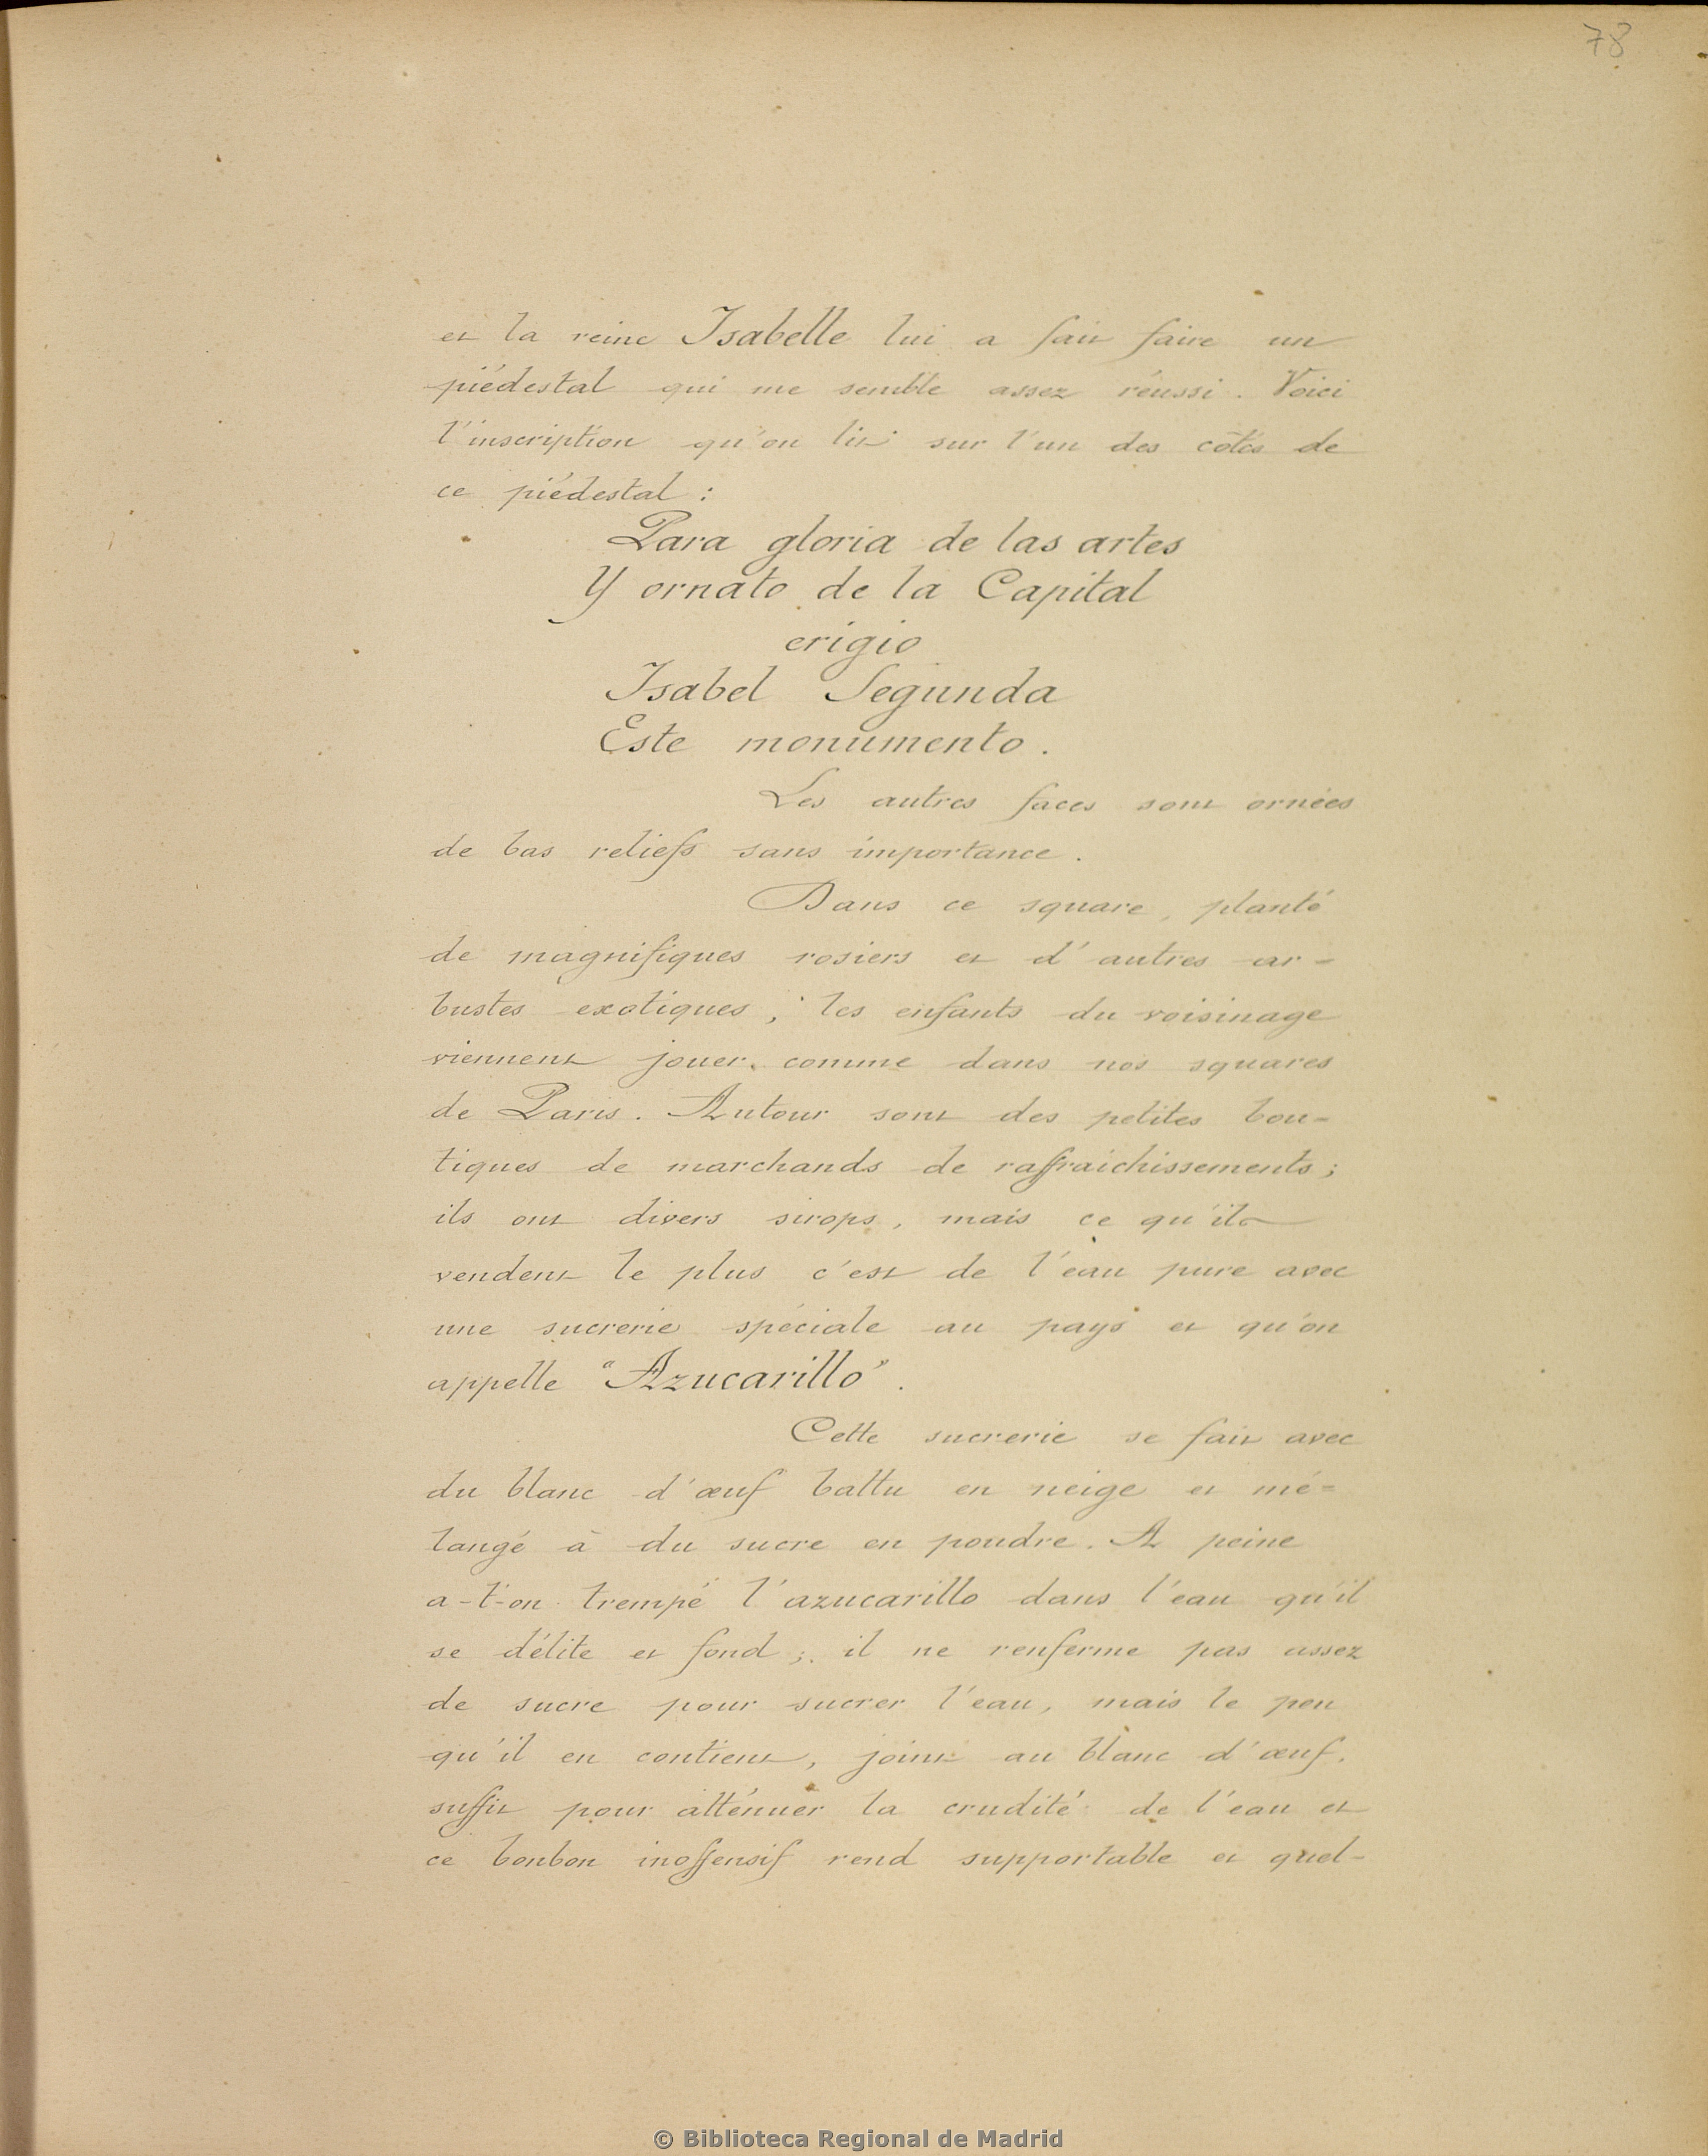 78
et la reine Isabelle lui a fait faire un
piédestal qui me semble assez réussi. Voici
l'inscription qu'on lit sur l'un des côtés de
ce piédestal :
Para gloria de las artes
Y ornato de la Capital
erigio
Isabel Segunda
Este monumento.
Les autres faces sont ornées
de bas reliefs sans importance.
Dans ce square, planté
de magnifiques rosiers et d'autres ar=
bustes exotiques, les enfants du voisinage
viennent jouer comme dans nos squares
de Paris. Autour sont des petites bou=
tiques de marchands de raffraichissements;
ils ont divers sirops, mais ce qu'ils
vendent le plus c'est de l'eau pure avec
une sucrerie spéciale au pays et qu'on
appelle "Azucarillo".
Cette sucrerie se fait avec
du blanc d'œuf battu en neige et mé=
langé à du sucre en poudre. A peine
a-t'-on trempé l'azucarillo dans l'eau qu'il
se délite et fond; il ne renferme pas assez
de sucre pour sucrer l'eau, mais le peu
qu'il en contient, joint au blanc d'œuf,
suffit pour atténuer la crudité de l'eau et
ce bonbon inoffensif rend supportable et quel-
© Biblioteca Regional de Madrid